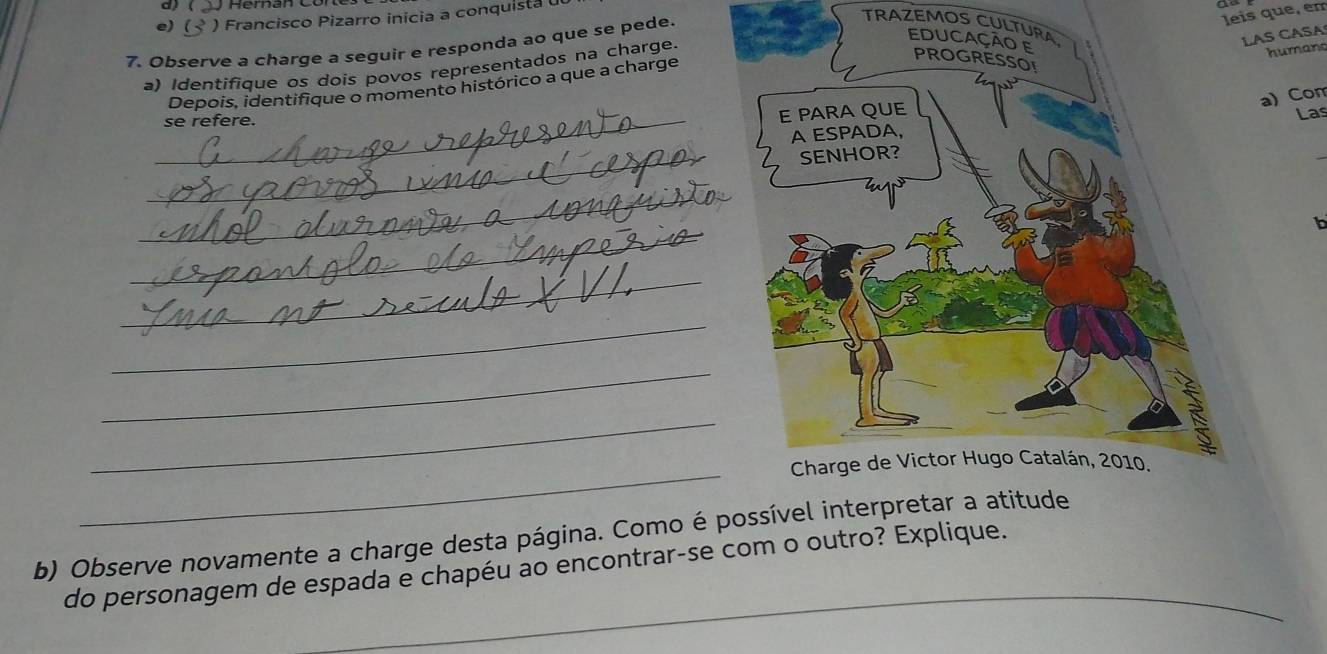 e) (3) Francisco Pizarro inicia a conquista
7. Observe a charge a seguir e responda ao que se pede.
a) Identifique os dois povos representados na charge.
Depois, identifique o momento histórico a que a charge
se refere.
a charge representa
os povos inca e espa
nhol durante a conquista
espanhola do Império
Inca no século XVI.
TRAZEMOS CULTURA,
EDUCAÇÃO E
PROGRESSO!
E PARA QUE
A ESPADA,
SENHOR?
HCATALÁN
Charge de Victor Hugo Catalán, 2010.
b) Observe novamente a charge desta página. Como é possível interpretar a atitude
do personagem de espada e chapéu ao encontrar-se com o outro? Explique.
leis que, em
LAS CASAS
human
a) Com
Las
b